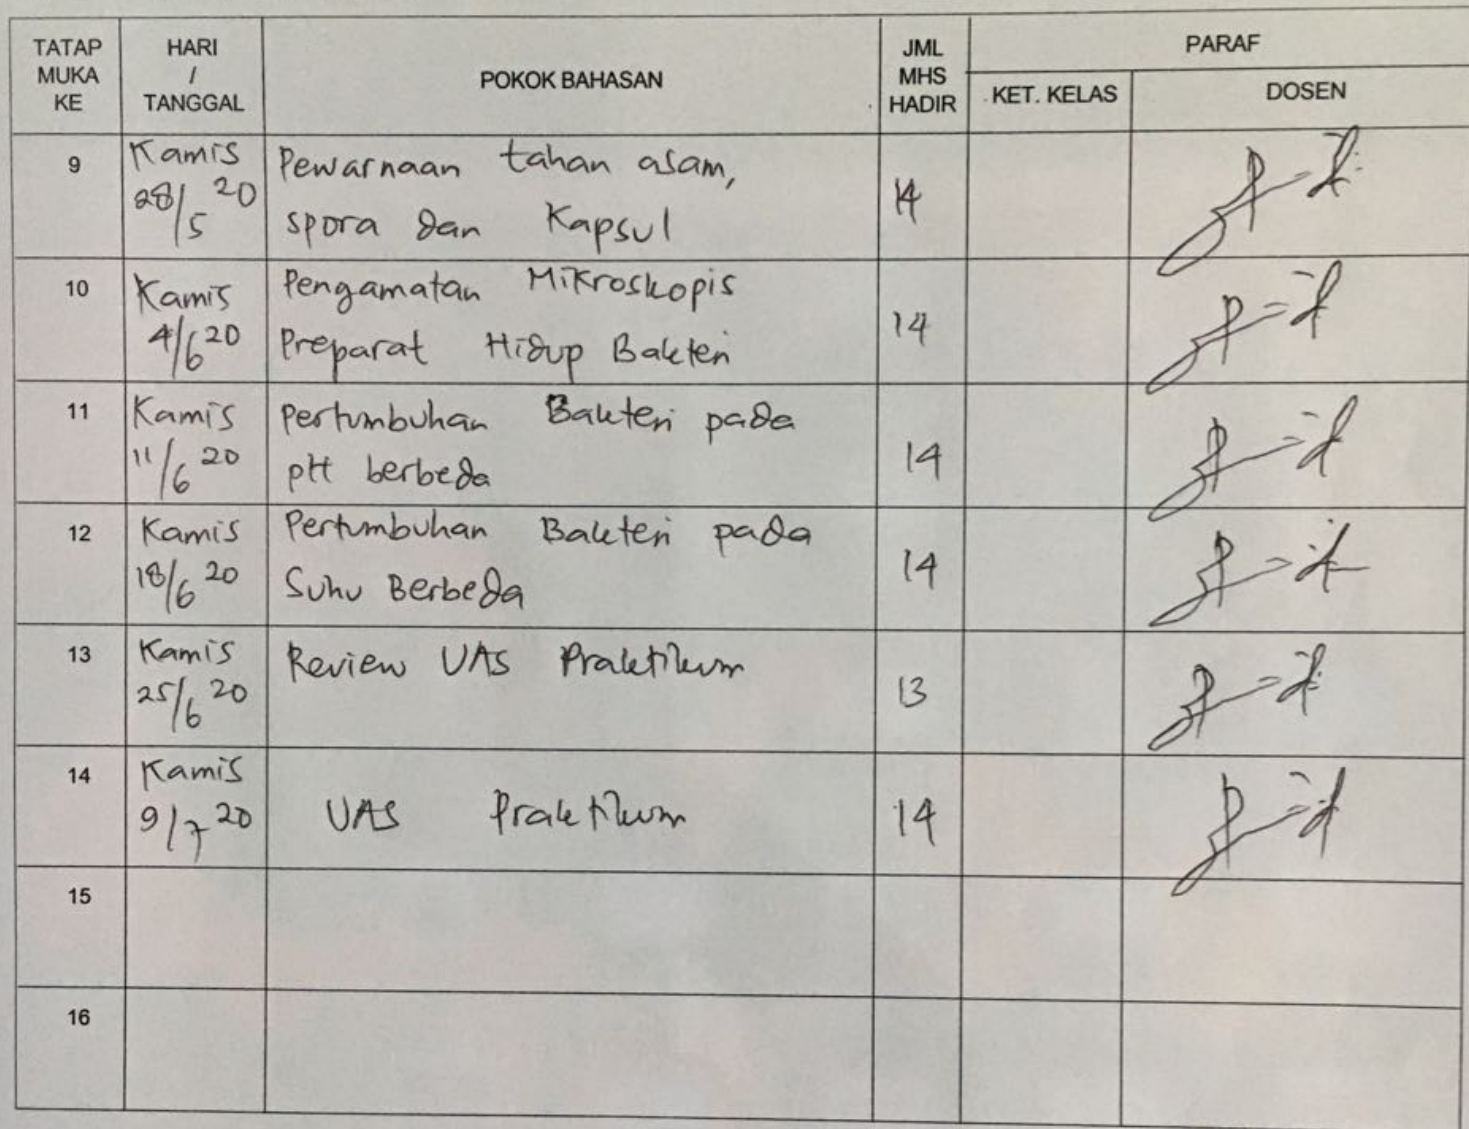 TATAP MUKA KE
HARI / TANGGAL
POKOK BAHASAN
JML MHS HADIR
PARAF
KET. KELAS
DOSEN
9
Kamis
28/5 20
Pewarnaan tahan asam,
spora dan Kapsul
14
10
Kamis
4/6 20
Pengamatan Mikroskopis
Preparat Hidup Bakteri
14
11
Kamis
11/6 20
Pertumbuhan Bakteri pada
pH berbeda
14
12
Kamis
18/6 20
Pertumbuhan Bakteri pada
Suhu Berbeda
14
13
Kamis
25/6 20
Review UAS Praktikum
13
14
Kamis
9/7 20
UAS Praktikum
14
15
16